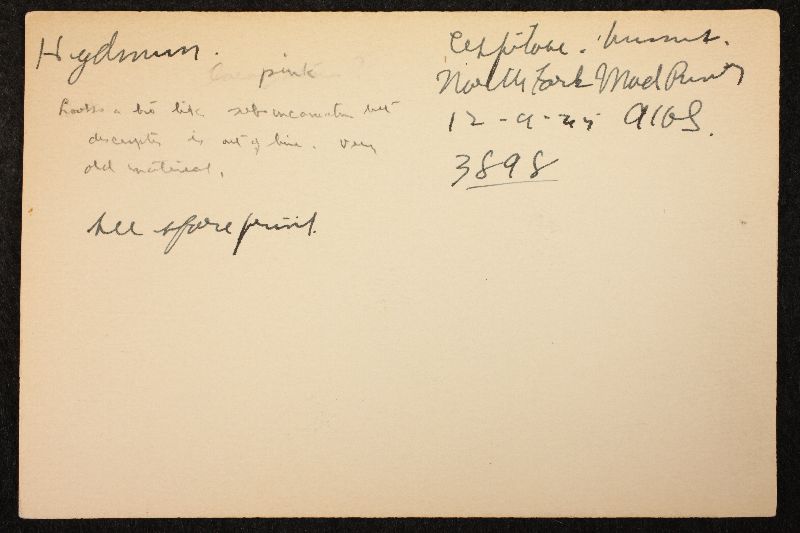 Hydnum.
pink
Looks a bit like subincarnatum but
descripts is out of line. Very
old material.
see spore print.
Cespitose. humus.
North Fork Mad River
12-9-45 AHS.
3898